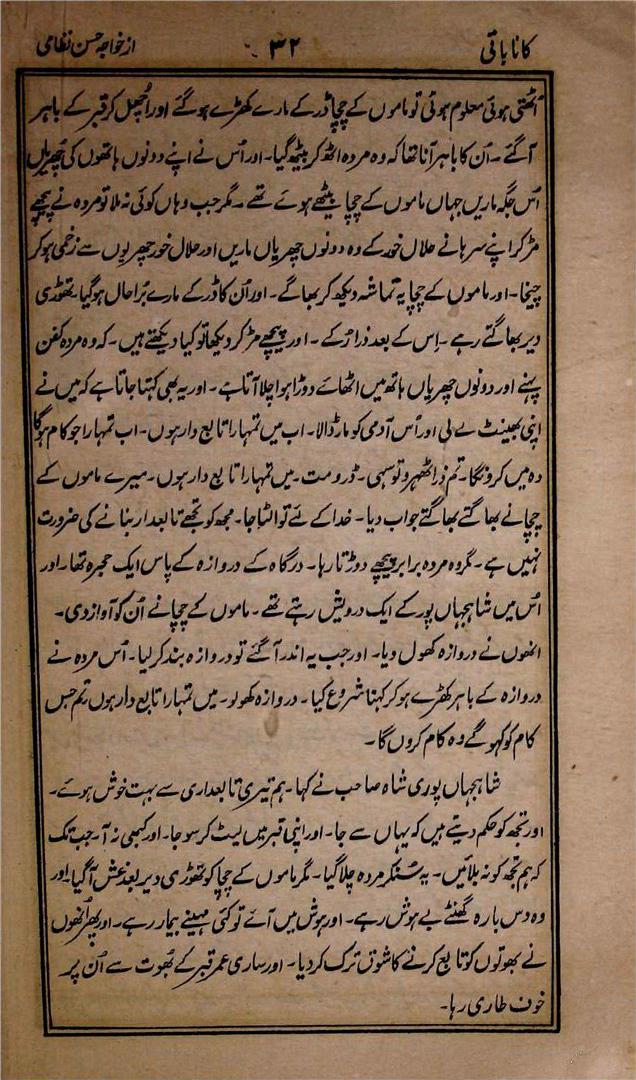 کانا باتی
۳۲
از خواجہ حسن نظامی
اُٹھتی ہوئی معلوم ہوئی تو ماموں کے چچا ڈر کے مارے کھڑے ہو گئے اور اُچھل کر قبر کے باہر
آگئے۔ اُن کا باہر آنا تھا کہ وہ مردہ اٹھ کر بیٹھ گیا۔ اور اُس نے اپنے دونوں ہاتھوں کی چھریاں
اُس جگہ ماریں جہاں ماموں کے چچا بیٹھے ہوئے تھے۔ مگر جب وہاں کوئی نہ ملا تو مردہ نے پیچھے
مڑ کر اپنے سرہانے حلال خور کے وہ دونوں چھریاں ماریں اور حلال خور چھریوں سے زخمی ہو کر
چیخا۔ اور ماموں کے چچا یہ تماشہ دیکھ کر بھاگے۔ اور اُن کا ڈر کے مارے بُرا حال ہو گیا۔ تھوڑی
دیر بھاگتے رہے۔ اِس کے بعد ذرا رُکے۔ اور پیچھے مڑ کر دیکھا تو کیا دیکھتے ہیں۔ کہ وہ مردہ کفن
پہنے اور دونوں چھریاں ہاتھ میں اٹھائے دوڑا ہوا چلا آتا ہے۔ اور یہ بھی کہتا جاتا ہے کہ میں نے
اپنی بھینٹ لے لی اور اُس آدمی کو مار ڈالا۔ اب میں تمہارا تابع دار ہوں۔ اب تمہارا جو کام ہوگا
وہ میں کرونگا۔ تم ذرا ٹھہرو تو سہی۔ ڈرو مت۔ میں تمہارا تابع دار ہوں۔ میرے ماموں کے
چچا نے بھاگتے بھاگتے جواب دیا۔ خدا کے لئے تو الٹا جا۔ مجھ کو تجھے تابعدار بنانے کی ضرورت
نہیں ہے۔ مگر وہ مردہ برابر پیچھے دوڑتا رہا۔ درگاہ کے دروازہ کے پاس ایک حجرہ تھا۔ اور
اُس میں شاہجہاں پور کے ایک درویش رہتے تھے۔ ماموں کے چچا نے اُن کو آواز دی۔
انھوں نے دروازہ کھول دیا۔ اور جب یہ اندر آگئے تو دروازہ بند کر لیا۔ اُس مردہ نے
دروازہ کے باہر کھڑے ہو کر کہنا شروع کیا۔ دروازہ کھولو۔ میں تمہارا تابع دار ہوں تم جس
کام کو کہو گے وہ کام کروں گا۔
شاہجہاں پوری شاہ صاحب نے کہا۔ ہم تیری تابعداری سے بہت خوش ہوئے۔
اور تجھ کو حکم دیتے ہیں کہ یہاں سے جا۔ اور اپنی قبر میں لیٹ کر سو جا۔ اور کبھی نہ آ۔ جب تک
کہ ہم تجھ کو نہ بلائیں۔ یہ سُنکر مردہ چلا گیا۔ مگر ماموں کے چچا کو تھوڑی دیر بعد غش آگیا۔ اور
وہ دس بارہ گھنٹے بے ہوش رہے۔ اور ہوش میں آئے تو کئی مہینے بیمار رہے۔ اور پھر اُنھوں
نے بھوتوں کو تابع کرنے کا شوق ترک کر دیا۔ اور ساری عمر قبر کے بھُوت سے اُن پر
خوف طاری رہا۔